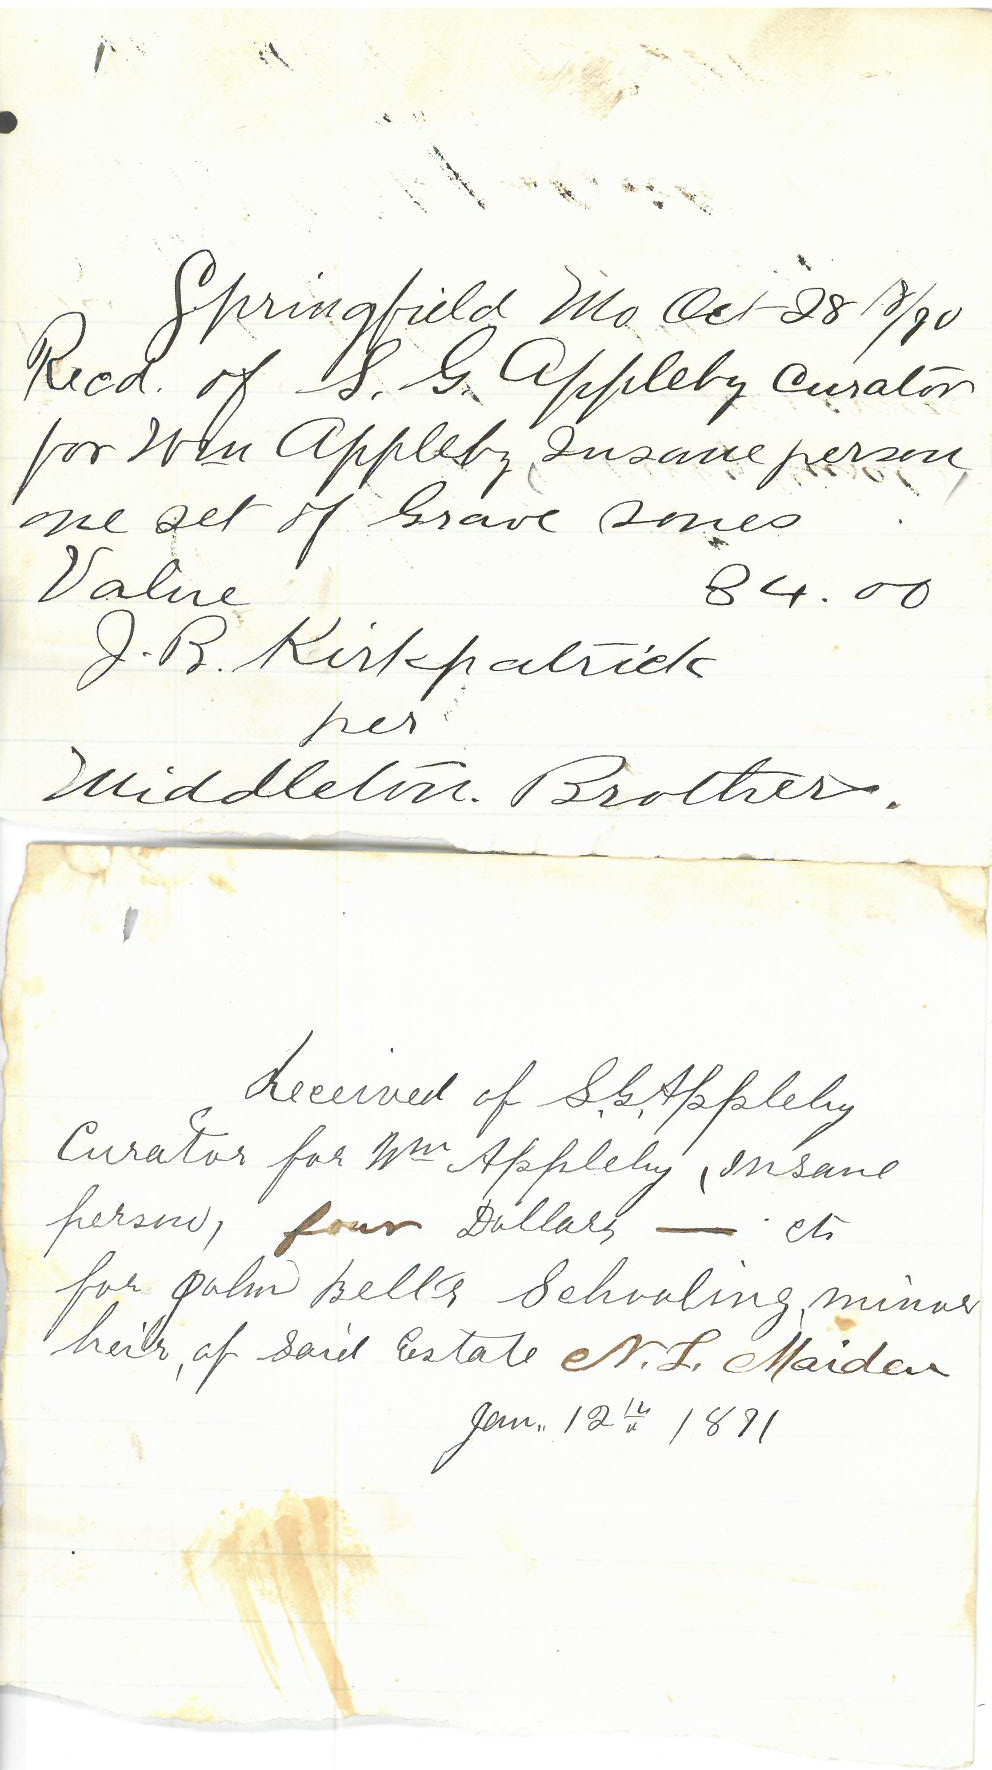 Springfield Mo Oct 28 18/90
Recd. of S. G. Appleby Curator
for Wm Appleby, Insane person,
one set of Grave sones
Value 84.00
J. B. Kirkpatrick
per
Middleton. Brothers.
Received of S.G. Appleby
Curator for Wm Appleby, insane
person, four Dollars — cts
for John Bell's Schooling, minor
heir, of Said Estate N. L. Maiden
Jan. 12th 1891